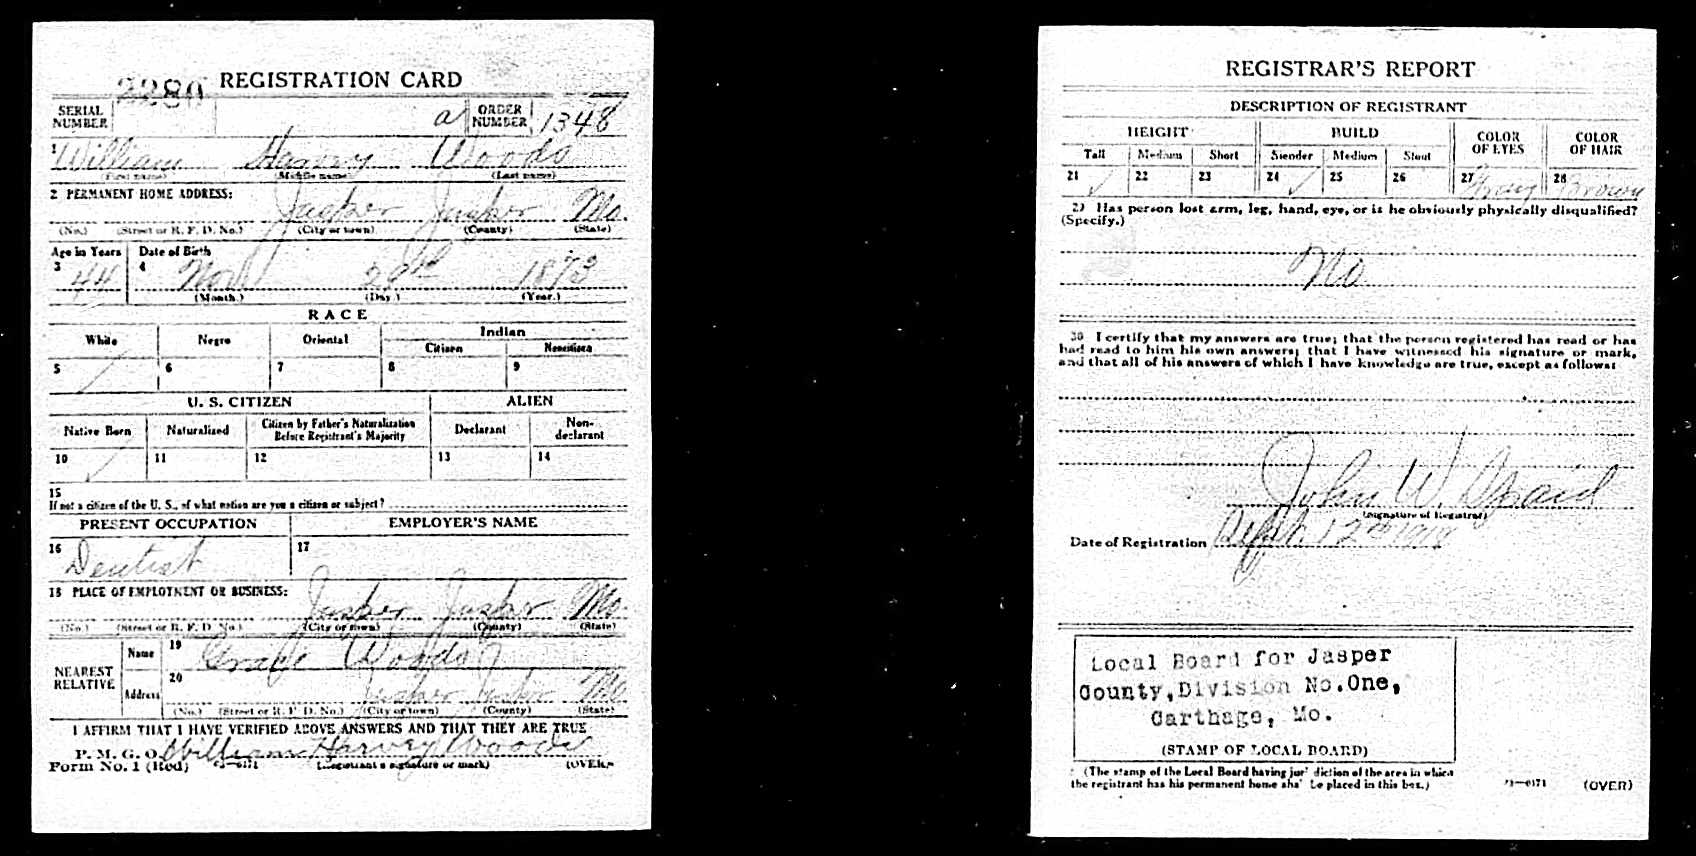 2280 REGISTRATION CARD
SERIAL NUMBER a ORDER NUMBER 1348
1 William Harvey Woods
(First name) (Middle name) (Last name)
2 PERMANENT HOME ADDRESS:
Jasper Jasper Mo.
(No.) (Street or R. F. D. No.) (City or town) (County) (State)
Age in Years Date of Birth
3 44 4 Nov 29th 1873
(Month.) (Day.) (Year.)
RACE
White Negro Oriental Indian
Citizen Noncitizen
5 6 7 8 9
U. S. CITIZEN ALIEN
Native Born Naturalized Citizen by Father's Naturalization Before Registrant's Majority Declarant Non-declarant
10 11 12 13 14
15
If not a citizen of the U. S., of what nation are you a citizen or subject?
PRESENT OCCUPATION EMPLOYER'S NAME
16 Dentist 17
18 PLACE OF EMPLOYMENT OR BUSINESS:
Jasper Jasper Mo.
(No.) (Street or R. F. D. No.) (City or town) (County) (State)
NEAREST RELATIVE Name 19 Grace Woods
Address 20 Jasper Jasper Mo
(No.) (Street or R. F. D. No.) (City or town) (County) (State)
I AFFIRM THAT I HAVE VERIFIED ABOVE ANSWERS AND THAT THEY ARE TRUE
P. M. G. O. William Harvey Woods
Form No. 1 (Red) (Registrant's signature or mark) (OVER)
REGISTRAR'S REPORT
DESCRIPTION OF REGISTRANT
HEIGHT BUILD COLOR OF EYES COLOR OF HAIR
Tall Medium Short Slender Medium Stout
21 22 23 24 25 26 27 Gray 28 Brown
29 Has person lost arm, leg, hand, eye, or is he obviously physically disqualified?
(Specify.)
No
30 I certify that my answers are true; that the person registered has read or has
had read to him his own answers; that I have witnessed his signature or mark,
and that all of his answers of which I have knowledge are true, except as follows:
John W.
(Signature of Registrar)
Date of Registration Sept. 12 1918
Local Board for Jasper
County, Division No. One,
Carthage, Mo.
(STAMP OF LOCAL BOARD)
(The stamp of the Local Board having jur diction of the area in which
the registrant has his permanent home sha be placed in this box.)
(OVER)